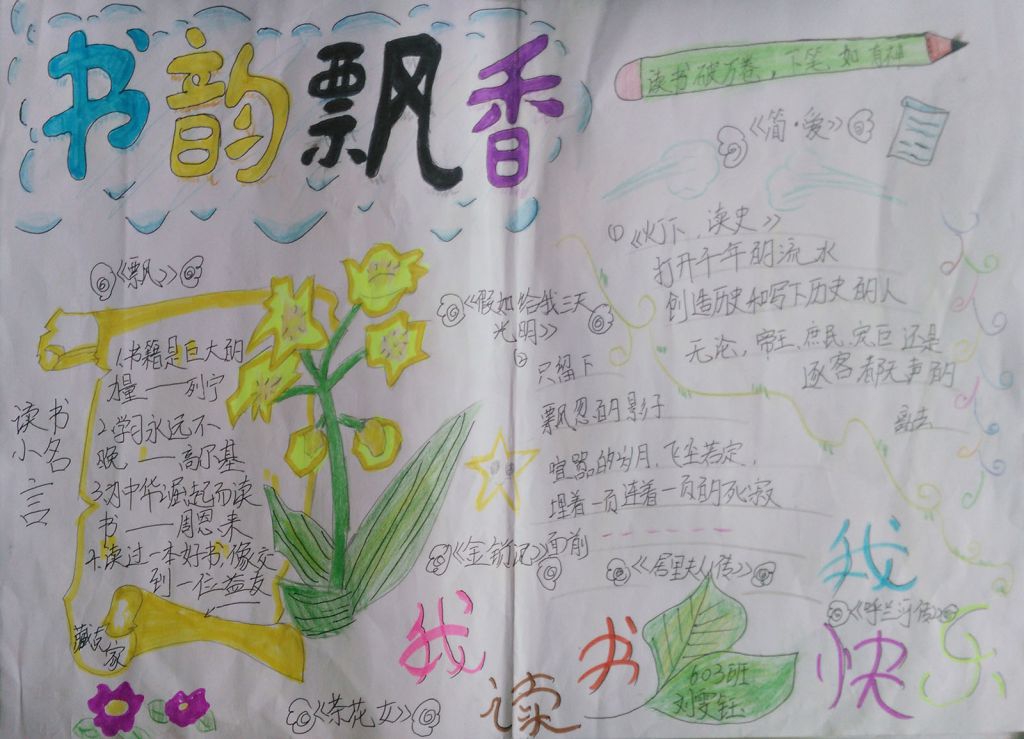 书韵飘香
读书破万卷，下笔如有神
《简·爱》
《飘》
读书小名言
1.书籍是巨大的
力量——列宁
2.学习永远不
晚——高尔基
3.为中华崛起而读
书——周恩来
4.读过一本好书，像交
到一位益友
藏克家
《假如给我三天
光明》
①《灯下，读史》
打开千年的流水
创造历史和写下历史的人
无论，帝王、庶民、灾臣还是
逐客都无声的
离去
只留下
飘忽的影子
喧嚣的岁月，飞尘若定，
埋着一页连着一页的死寂
面前
《金銷记》
《居里夫人传》
《呼兰河传》
《茶花女》
我读书
我快乐
603班
刘雯钰